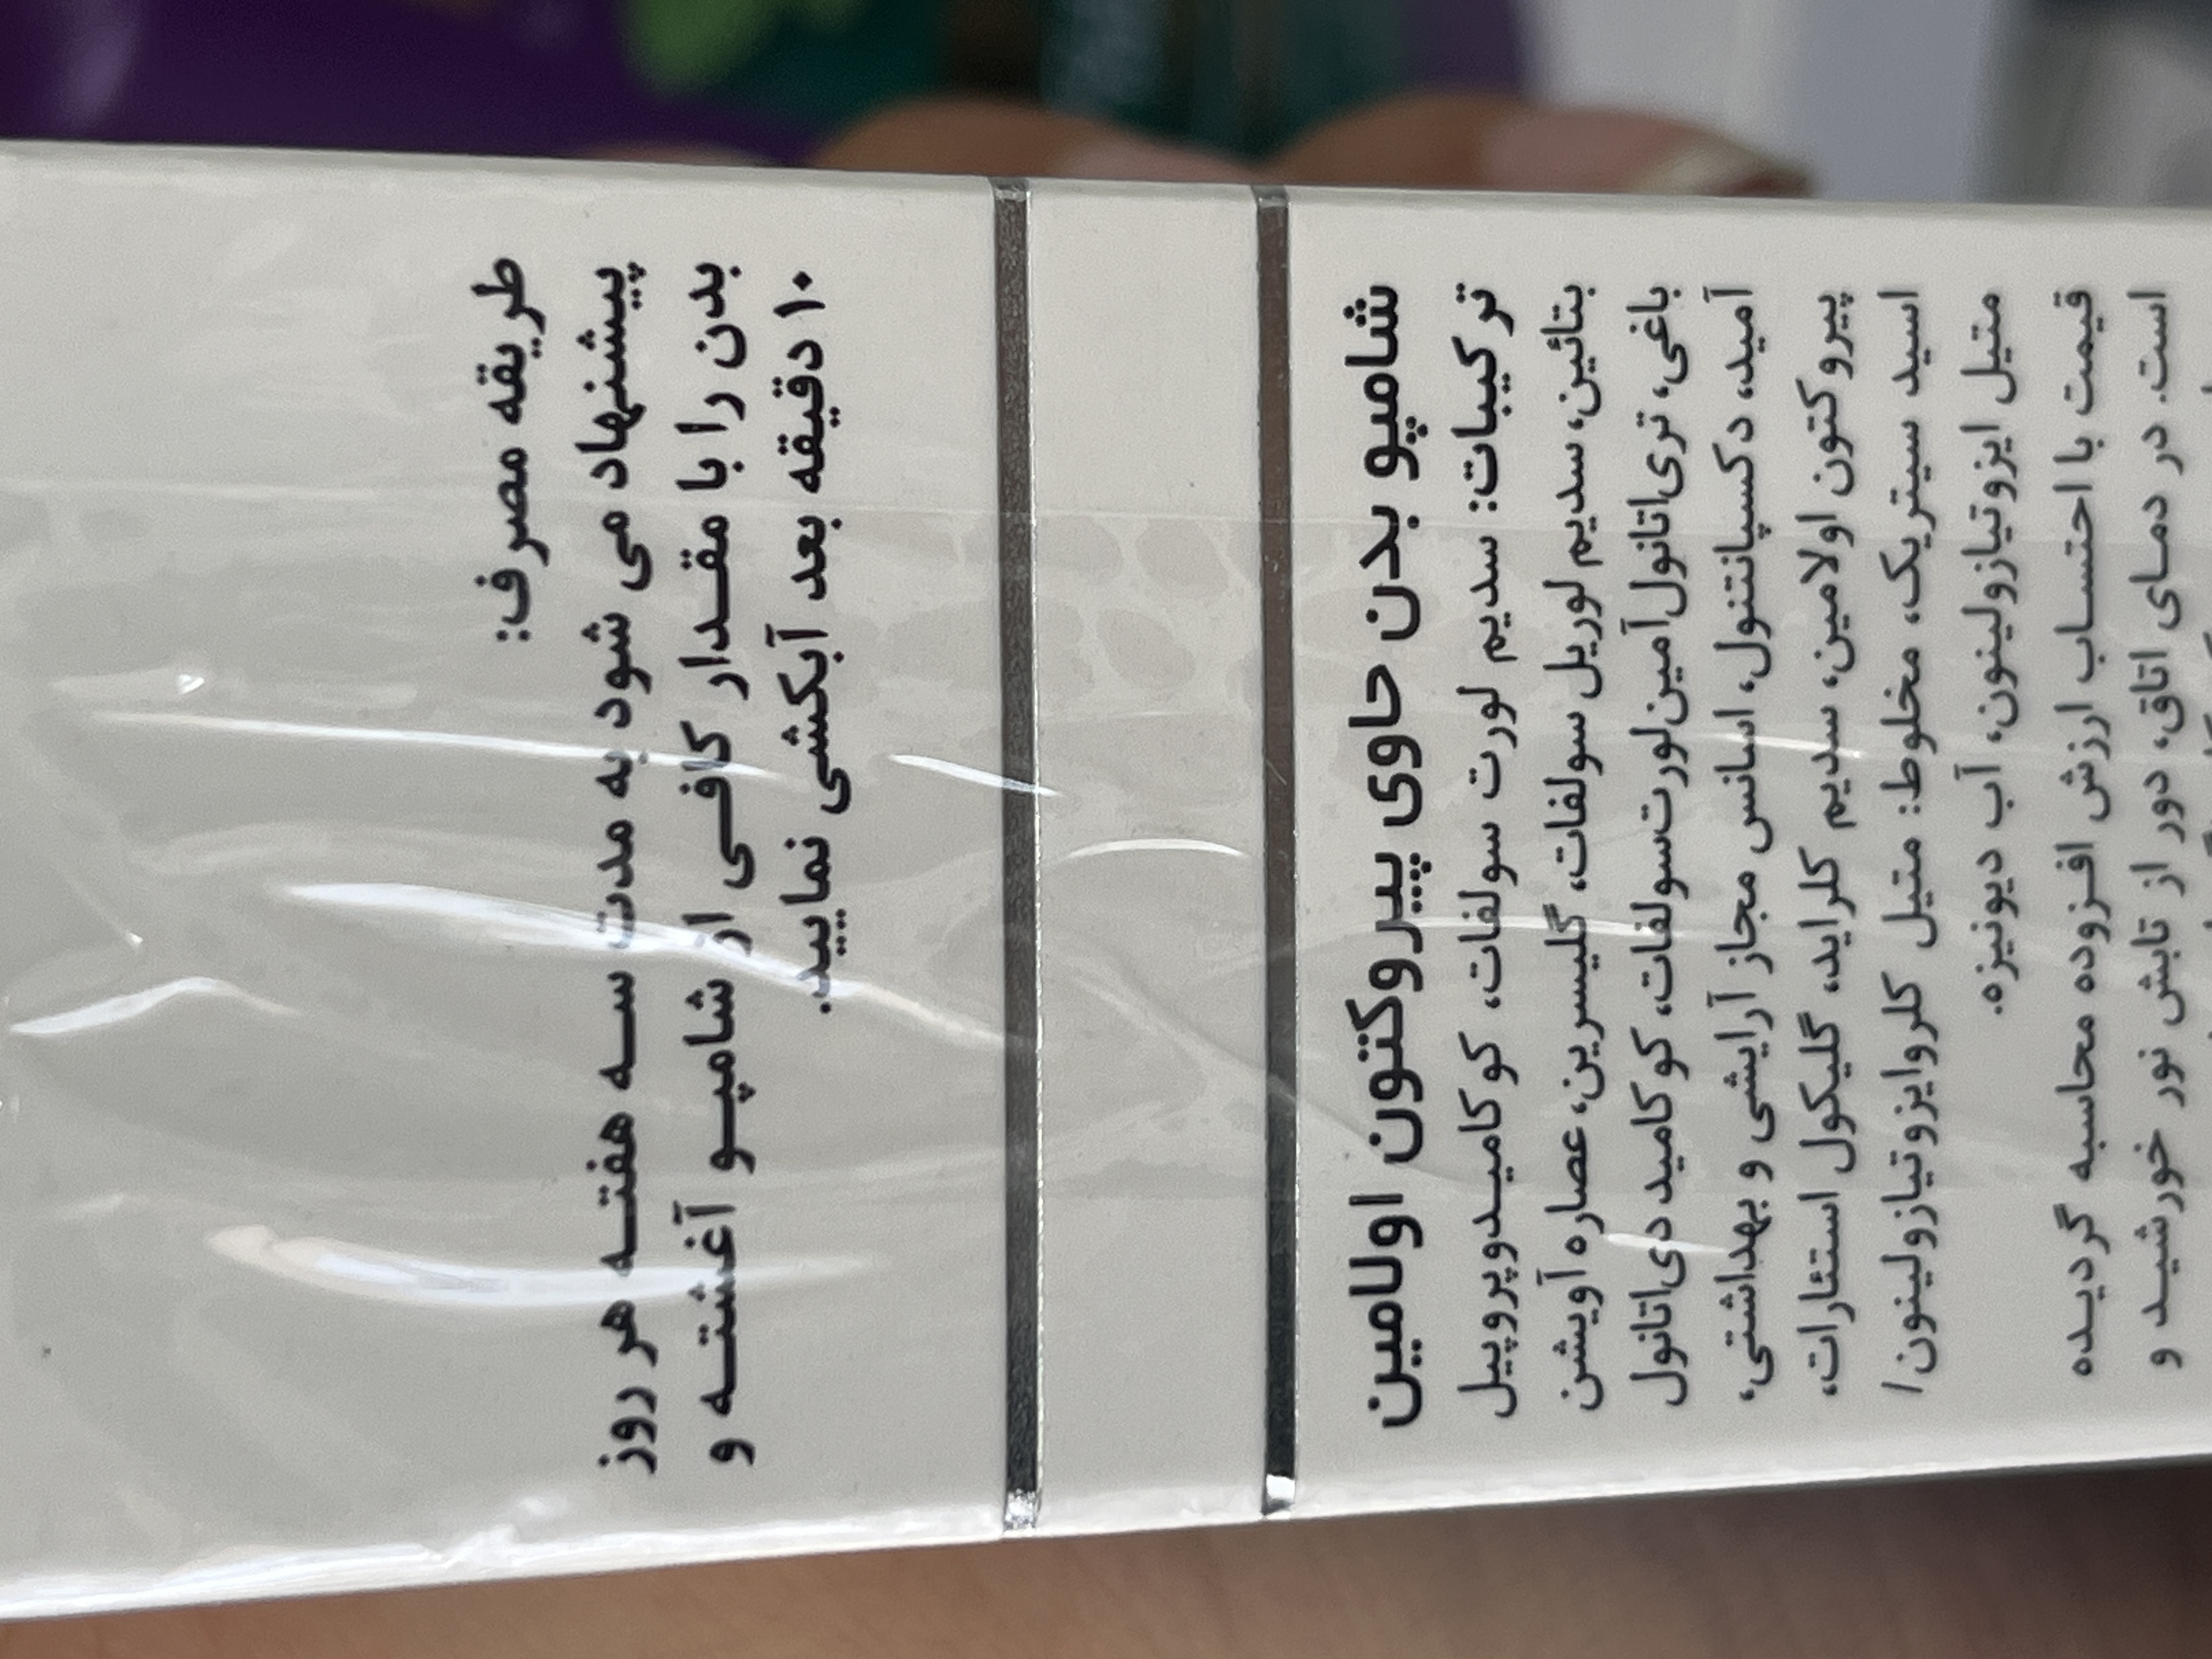 طریقه مصرف:
پیشنهاد می شود به مدت سه هفته هر روز
بدن را با مقدار کافی از شامپو آغشته و
۱۰ دقیقه بعد آبکشی نمایید.
شامپو بدن حاوی پیروکتون اولامین
ترکیبات: سدیم لورت سولفات، کوکامیدوپروپیل
بتائین، سدیم لوریل سولفات، گلیسرین، عصاره آویشن
باغی، تری‌اتانول‌آمین‌لورت‌سولفات، کوکامید دی‌اتانول
آمید، دکسپانتنول، اسانس مجاز آرایشی و بهداشتی،
پیروکتون اولامین، سدیم کلراید، گلیکول استئارات،
اسید سیتریک، مخلوط: متیل کلروایزوتیازولینون/
متیل ایزوتیازولینون، آب دیونیزه.
قیمت با احتساب ارزش افزوده محاسبه گردیده
است. در دمای اتاق، دور از تابش نور خورشید و